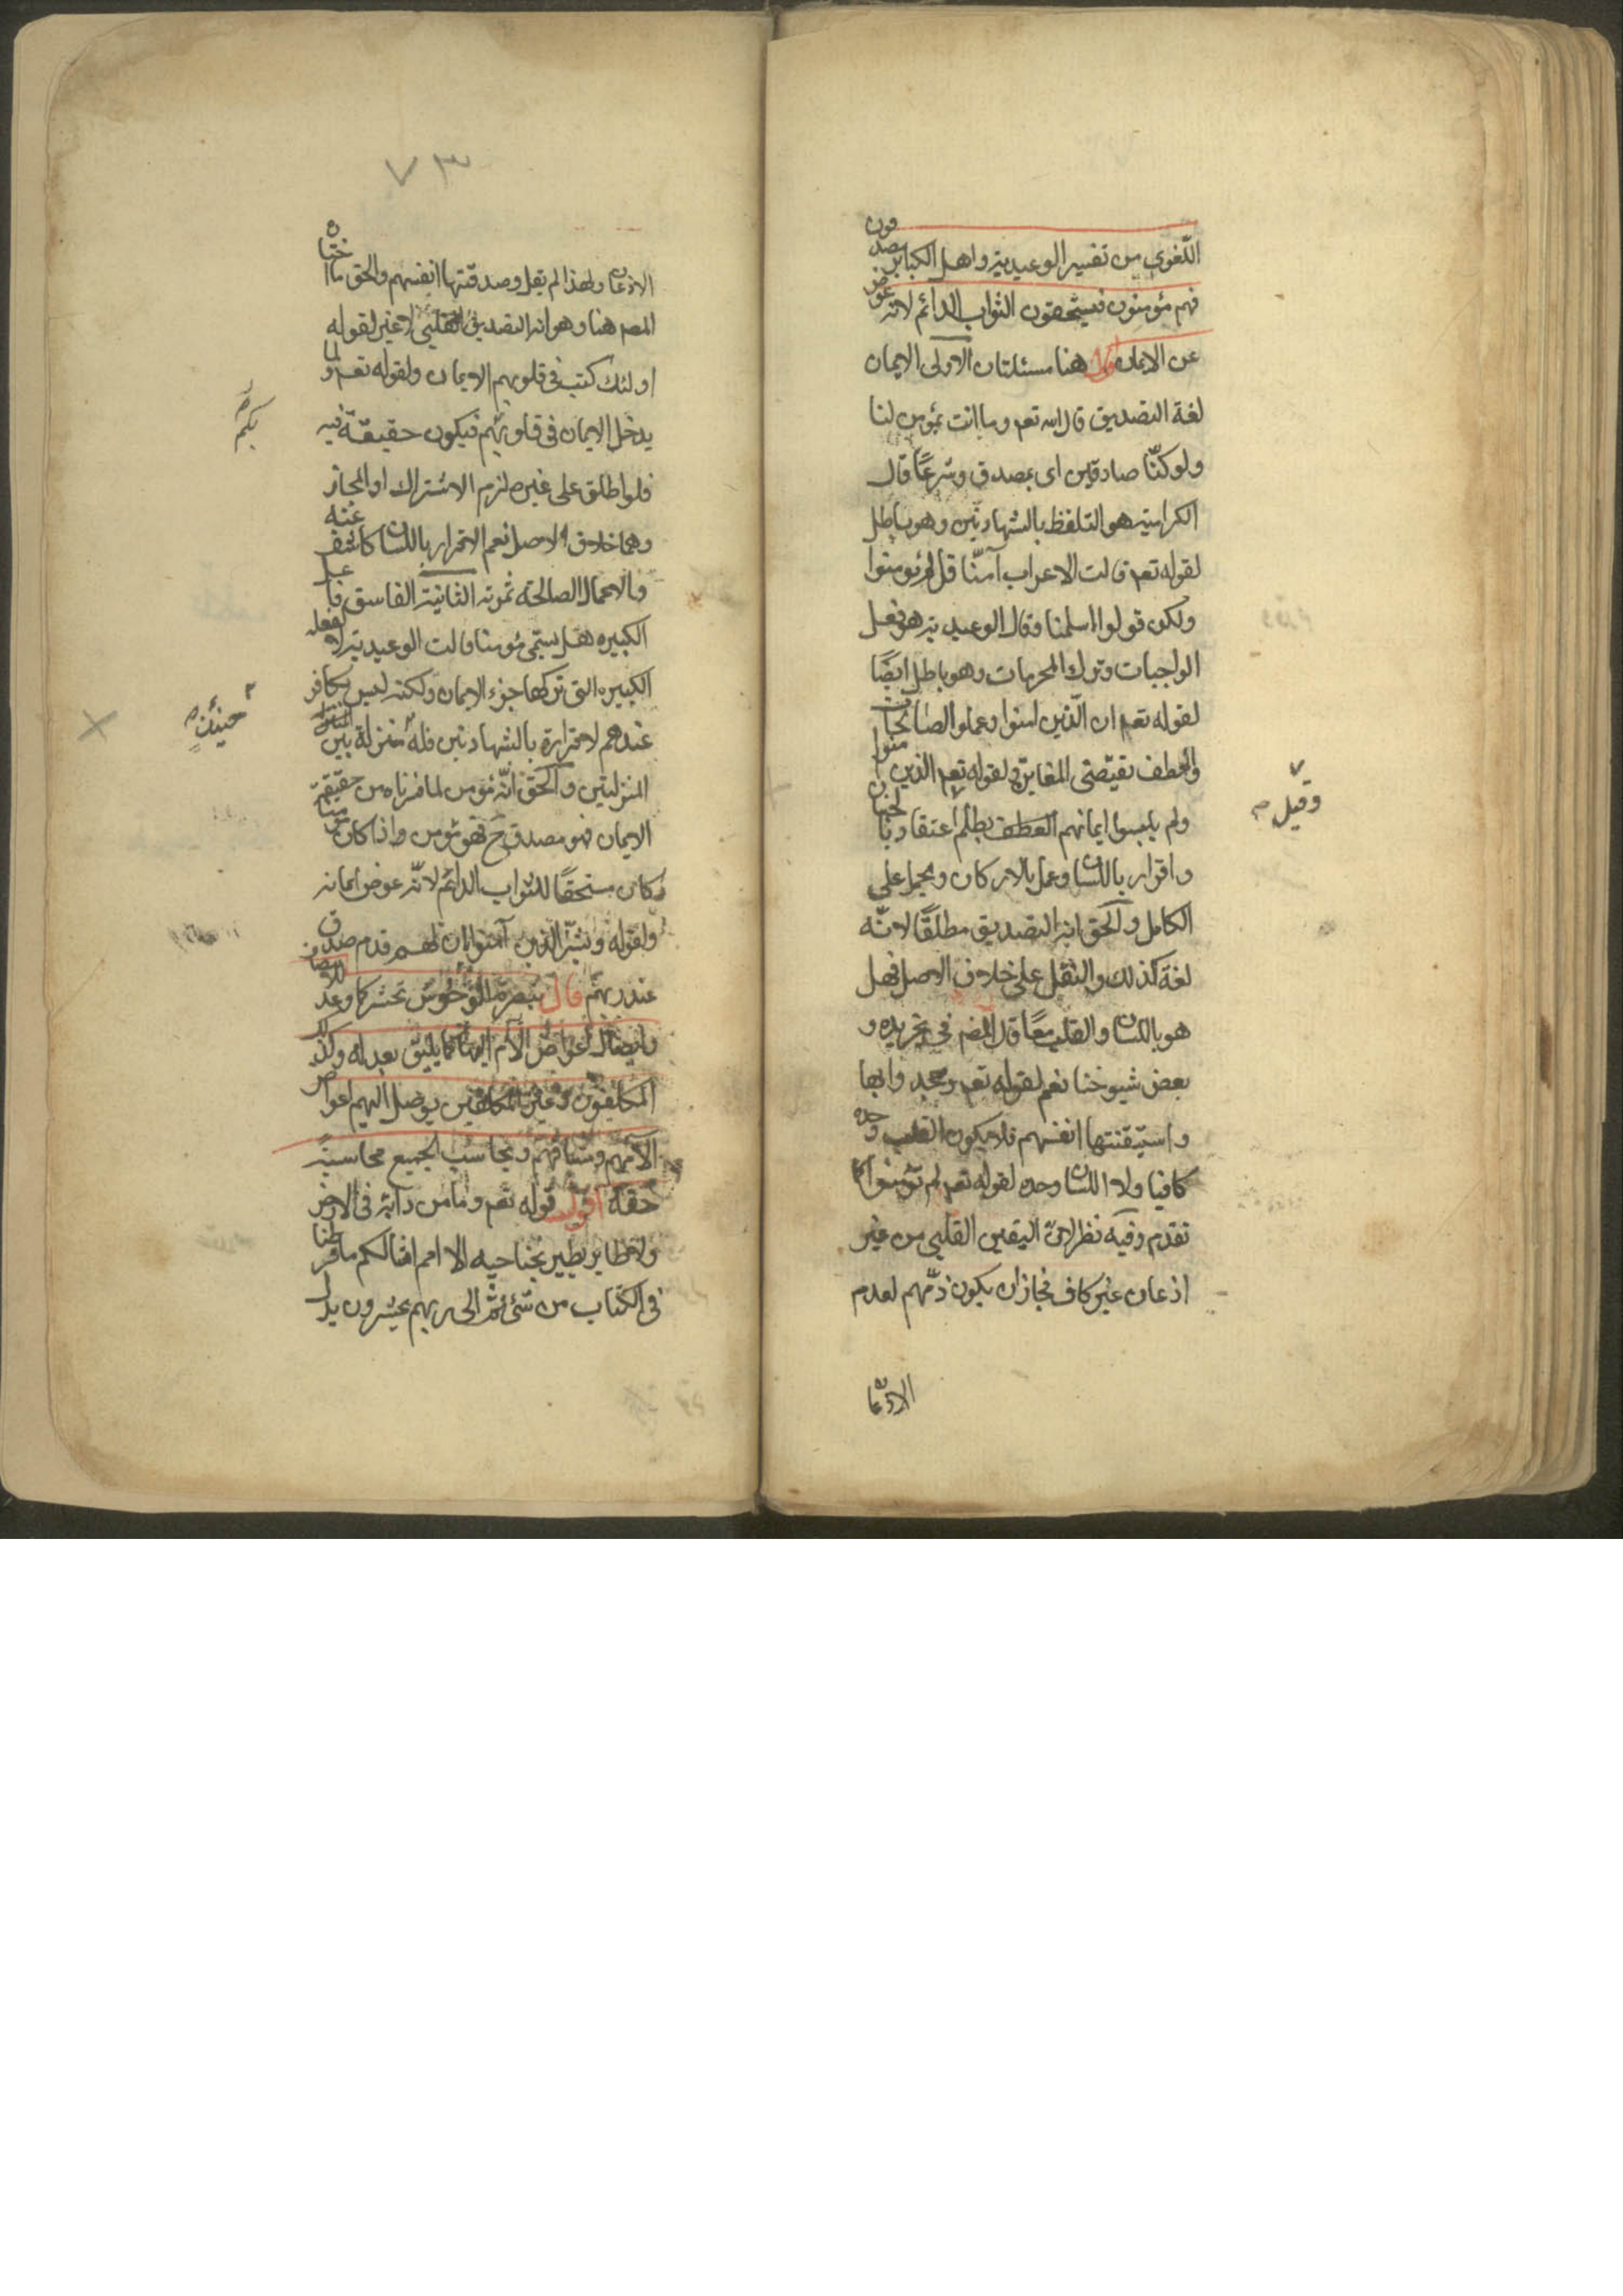 اللّغوي من تفسير الوعيدية واهل الكباير مصدقون
فهم مؤمنون فيستحقون الثواب الدائم لانه عوض
عن الايمان اقول هنا مسئلتان الاولى الايمان
لغة التصديق قال الله تعم وما انت بمؤمن لنا
ولو كنّا صادقين اى بمصدق وشرعًا قال
الكرامية هو التلفظ بالشهادتين وهو باطل
لقوله تعم قالت الاعراب آمنّا قل لم تؤمنوا
ولكن قولوا اسلمنا وقال الوعيدية هو فعل
الواجبات وترك المحرمات وهو باطل ايضًا
لقوله تعم ان الّذين امنوا وعملوا الصالحات
والعطف يقتضى المغايرة ولقوله تعم الذين امنوا
ولم يلبسوا ايمانهم بظلم اعتقاد بالجنان
وقيل صح
واقرار باللسان وعمل بالاركان ويحمل على
الكامل والحق انه التصديق مطلقًا لانّه
لغة كذلك والنقل على خلاف الاصل فهل
هو باللسان والقلب معًا قال المص فى تجريده و
بعض شيوخنا نعم لقوله تعم وجحدوا بها
واستيقنتها انفسهم فلا يكون القلب وحده
كافيا ولا اللسان وحده لقوله تعم لم تؤمنوا كما
تقدم وفيه نظر لانّ اليقين القلبى من غير
اذعان غير كاف فجاز ان يكون ذمّهم لعدم
الاذعان
٧٣
الاذعان ولهذا لم يقل وصدقتها انفسهم والحق ما اختاره
المص هنا وهو انه التصديق القلبى لا غير لقوله
اولئك كتب فى قلوبهم الايمان ولقوله تعم ولما
يدخل الايمان فى قلوبهم فيكون حقيقة فيه
بكم
فلو اطلق على غيره لزم الاشتراك او المجاز
وهما خلاف الاصل نعم الاقرار باللسان كاشف عنه
والاعمال الصالحة ثمرته الثانية الفاسق فاعل
الكبيره هل يسمى مؤمنا قالت الوعيدية لا لفعله
الكبيره التى تركها جزء الايمان ولكنه ليس بكافر
عندهم لاقراره بالشهادتين فله منزلة بين
حينئذ صح
المنزلتين والحق انّه مؤمن لما قررناه من حقيقة
الايمان فهو مصدق ح فهو مؤمن واذا كان مؤمنا
فكان مستحقًا للثواب الدائم لانّه عوض ايمانه
ولقوله وبشّر الّذين آمنوا ان لهم قدم صدق
عند ربهم قال تبصرة الوحوش تحشر كما وعد
وايصال اعواض الآلام اليها كما يليق بعدله وكذلك
المكلّفون وغير المكلفين يوصل اليهم اعواض
الآمهم ومشاقهم ويحاسب الجميع محاسبة
حقة اقول قوله تعم وما من دابة فى الارض
ولا طاير يطير بجناحيه الا امم امثالكم ما فرطنا
فى الكتاب من شئ ثم الى ربهم يحشرون يدل